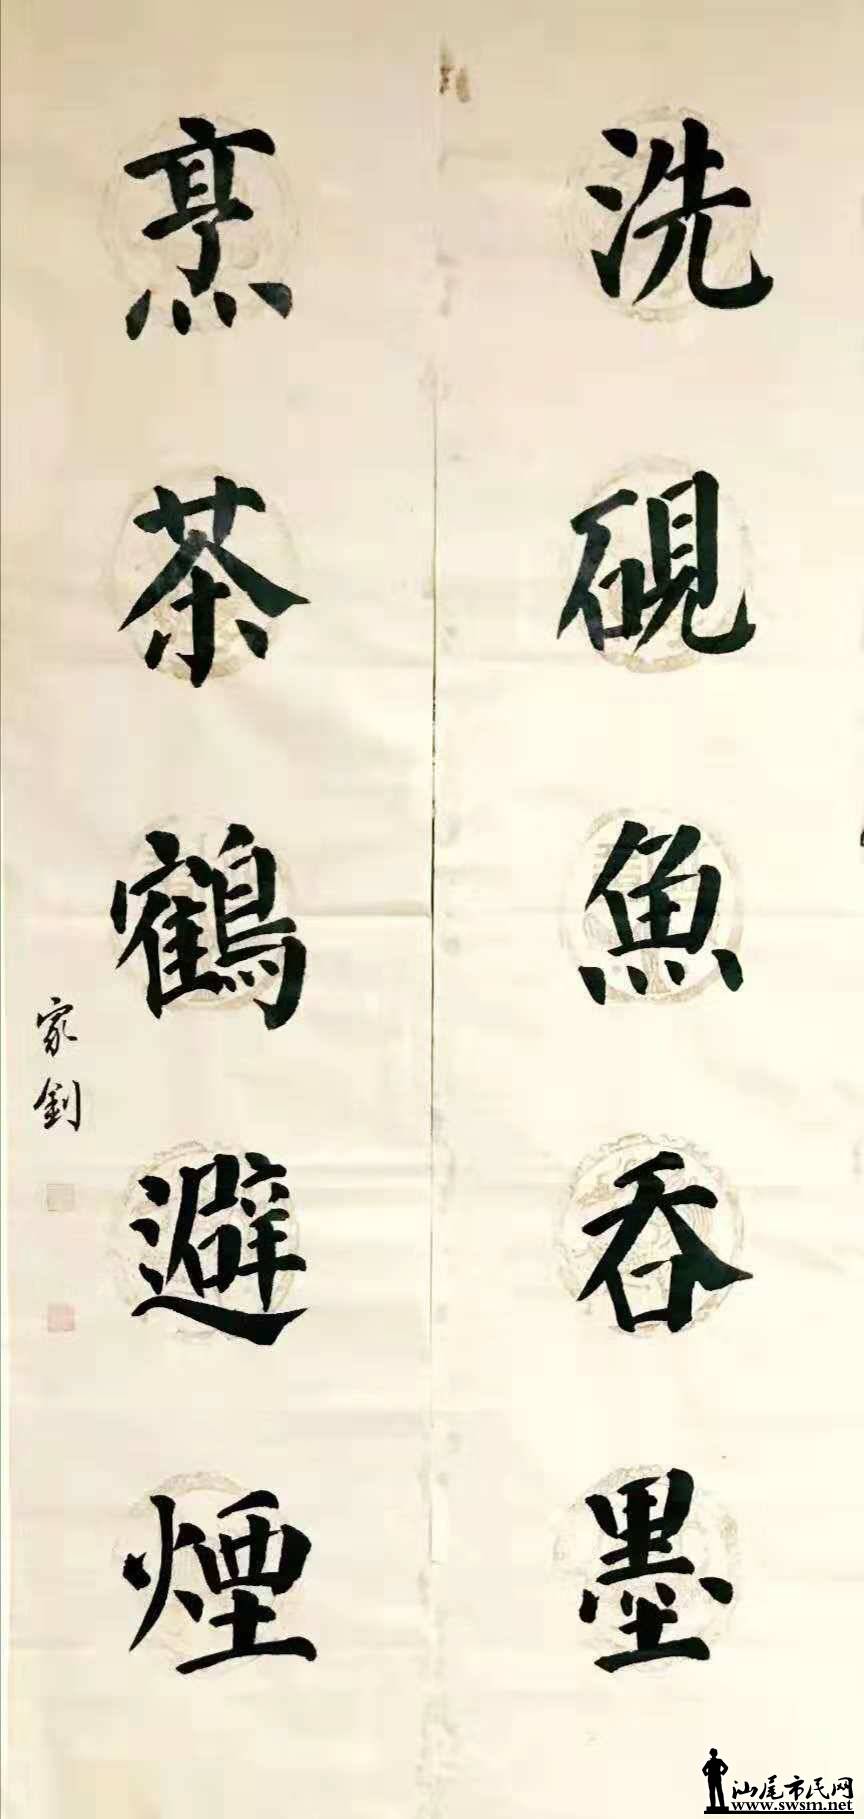 洗硯魚吞墨
烹茶鶴避煙
家釗
汕尾市民网
www.swsm.net